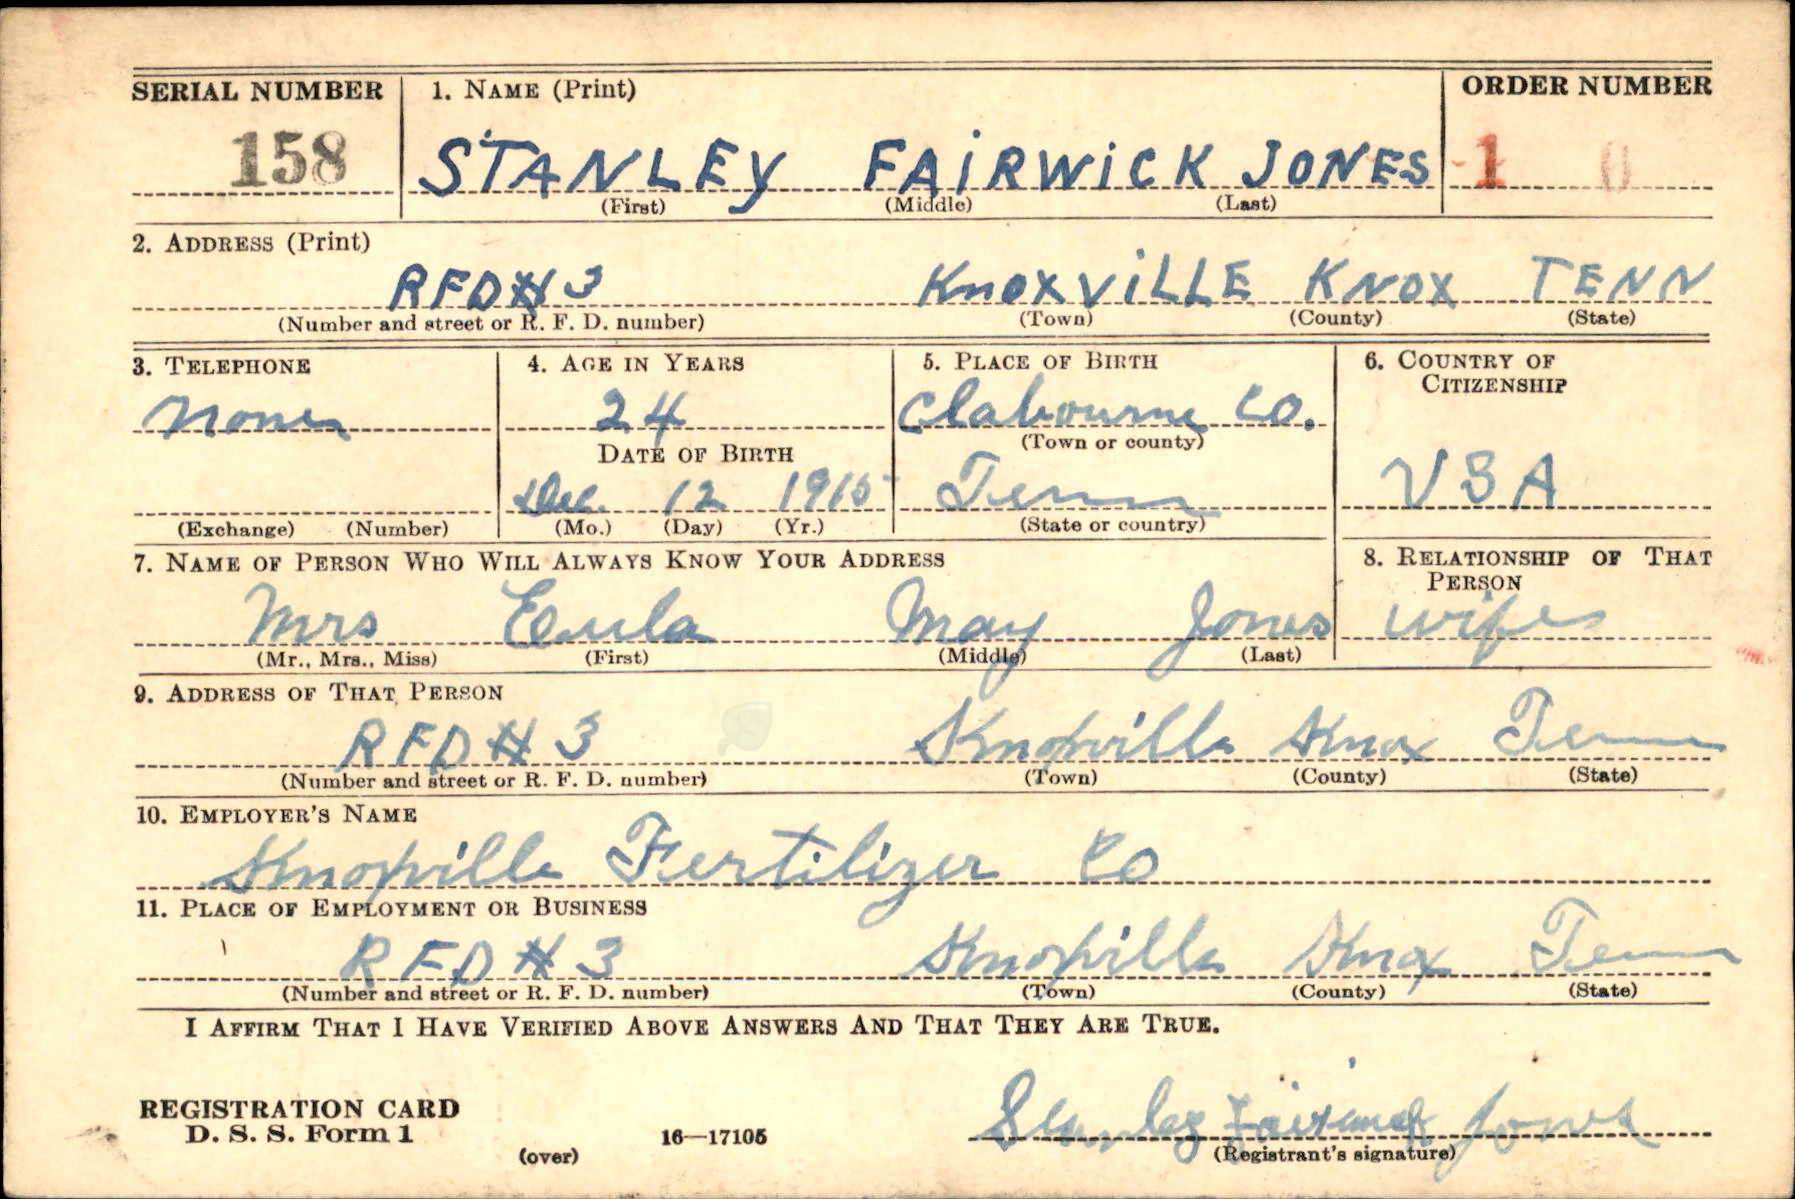 SERIAL NUMBER 1. NAME (Print) ORDER NUMBER
158 STANLEY FAIRWICK JONES 1 0
(First) (Middle) (Last)
2. ADDRESS (Print)
RFD# 3 KNOXVILLE KNOX TENN
(Number and street or R. F. D. number) (Town) (County) (State)
3. TELEPHONE 4. AGE IN YEARS 5. PLACE OF BIRTH 6. COUNTRY OF CITIZENSHIP
None 24 Clabourne Co.
(Town or county)
DATE OF BIRTH
Dec. 12 1915 Tenn USA
(Exchange) (Number) (Mo.) (Day) (Yr.) (State or country)
7. NAME OF PERSON WHO WILL ALWAYS KNOW YOUR ADDRESS 8. RELATIONSHIP OF THAT PERSON
Mrs Eula May Jones wife
(Mr., Mrs., Miss) (First) (Middle) (Last)
9. ADDRESS OF THAT PERSON
RFD # 3 Knoxville Knox Tenn
(Number and street or R. F. D. number) (Town) (County) (State)
10. EMPLOYER'S NAME
Knoxville Fertilizer Co
11. PLACE OF EMPLOYMENT OR BUSINESS
RFD # 3 Knoxville Knox Tenn
(Number and street or R. F. D. number) (Town) (County) (State)
I AFFIRM THAT I HAVE VERIFIED ABOVE ANSWERS AND THAT THEY ARE TRUE.
REGISTRATION CARD
D. S. S. Form 1
(over) 16—17105
Stanley Fairwick Jones
(Registrant's signature)